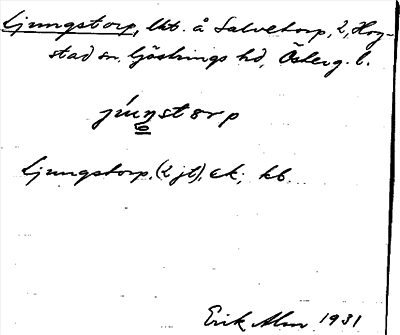 Ljungstorp, lht. å Salvetorp, 2, Hog-
stad sn. Göstrings hd, Österg. l.
júŋstorp
Ljungstorp, (2 jt), ek, kb.
Erik Alm 1931